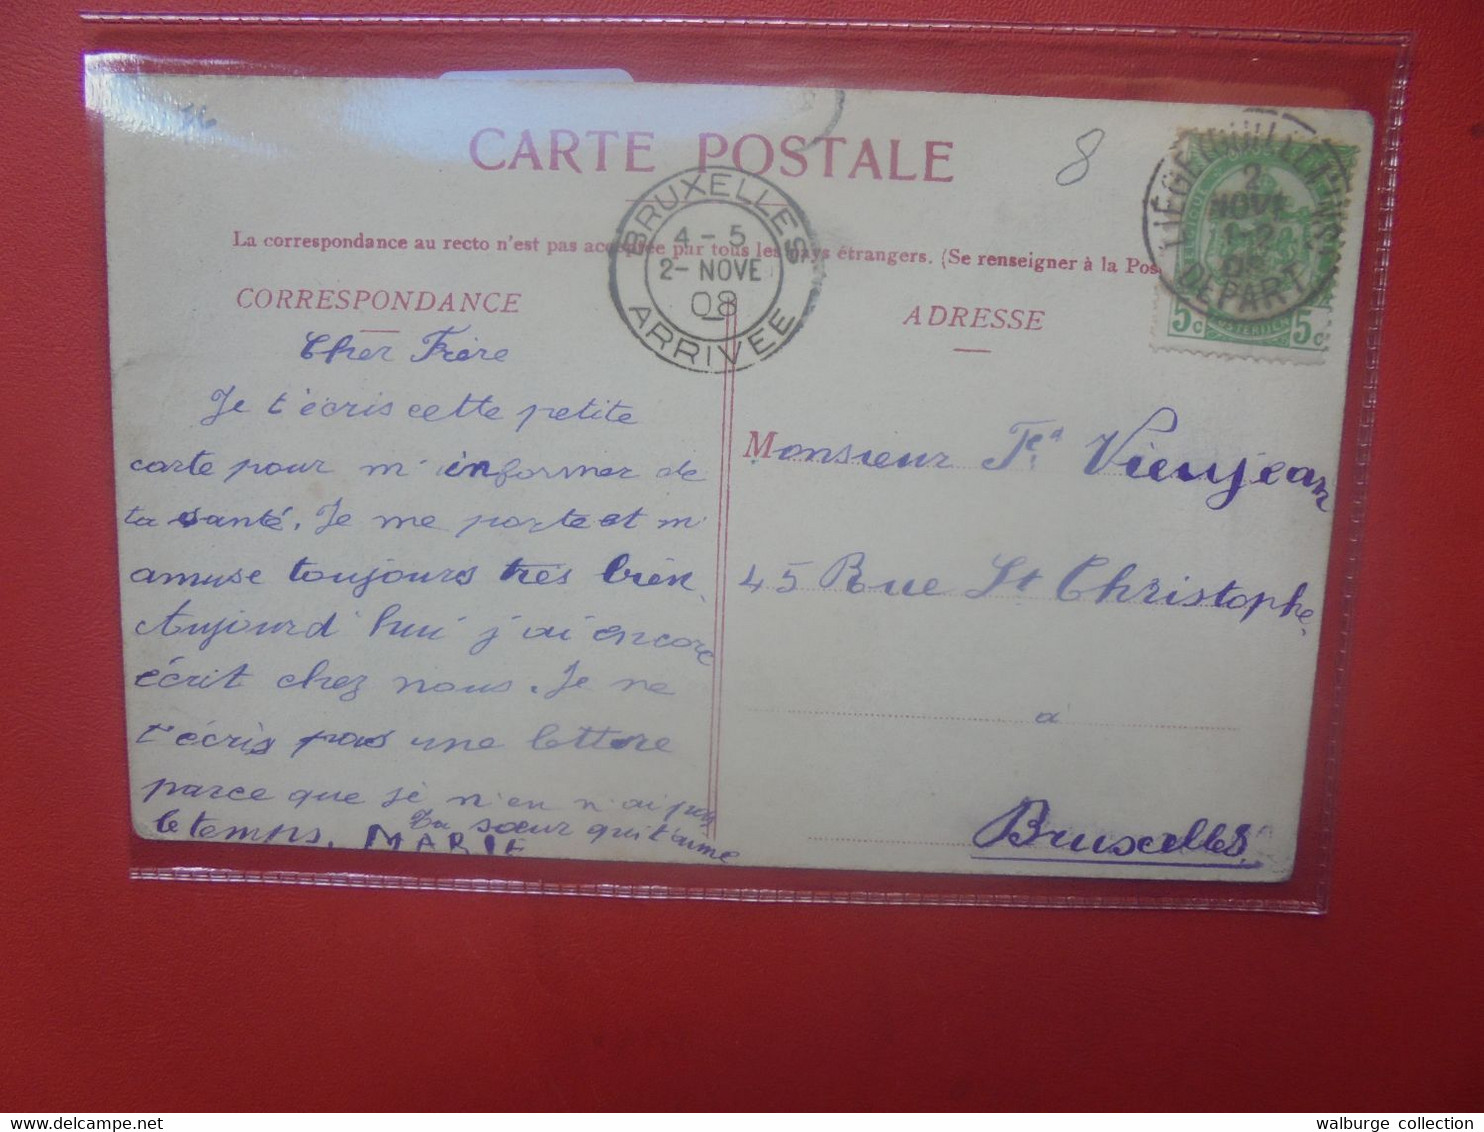 CARTE POSTALE
8
BRUXELLES
4 - 5
2 - NOVE
08
ARRIVEE
LIÈGE (GUILLEMINS)
2
NOVE
1-2
08
DEPART
5c 5c
La correspondance au recto n'est pas acceptée par tous les pays étrangers. (Se renseigner à la Pos
CORRESPONDANCE
Cher Frère
Je t'écris cette petite
carte pour m'informer de
ta santé. Je me porte et m'
amuse toujours très bien.
Aujourd'hui j'ai encore
écrit chez nous. Je ne
t'écris pas une lettre
parce que je n'en n'ai pas
le temps. Ta sœur qui t'aime
MARIE
ADRESSE
Monsieur Vieujean
45 Rue St Christophe.
à
Bruxelles.
walburge collection